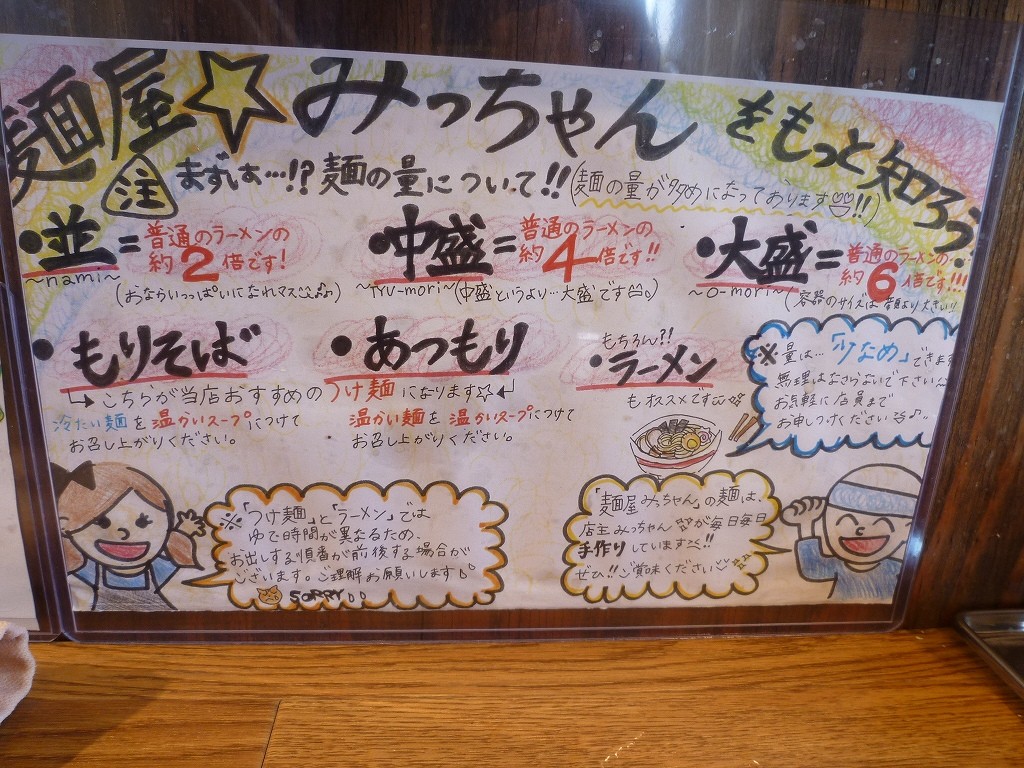 麺屋☆みっちゃんをもっと知ろう
注 まずはぁ…!?麺の量について!!(麺の量が多めになっております!!)
・並=普通のラーメンの約2倍です!
~nami~(おならいっぱいになれマス♪)
・中盛=普通のラーメンの約4倍です!!
(中盛というより…大盛です)
・大盛=普通のラーメンの約6倍です!!!
~o-mori~(容器のサイズは顔より大きい!!
・もりそば
・あつもり
こちらが当店おすすめのつけ麺になります☆
冷たい麺を温かいスープにつけて
お召し上がりください。
温かい麺を温かいスープにつけて
お召し上がりください。
もちろん?!
・ラーメン
もオススメです
※量は…「少なめ」できます
無理はなさらないで下さい
お気軽に店員まで
お申しつけください♪
※「つけ麺」と「ラーメン」では
ゆで時間が異なるため、
お出しする順番が前後する場合が
ございます。ご理解お願いします
SORRY
「麺屋みっちゃん」の麺は、
店主みっちゃんが毎日毎日
手作りしています!!
ぜひ!!ご賞味ください